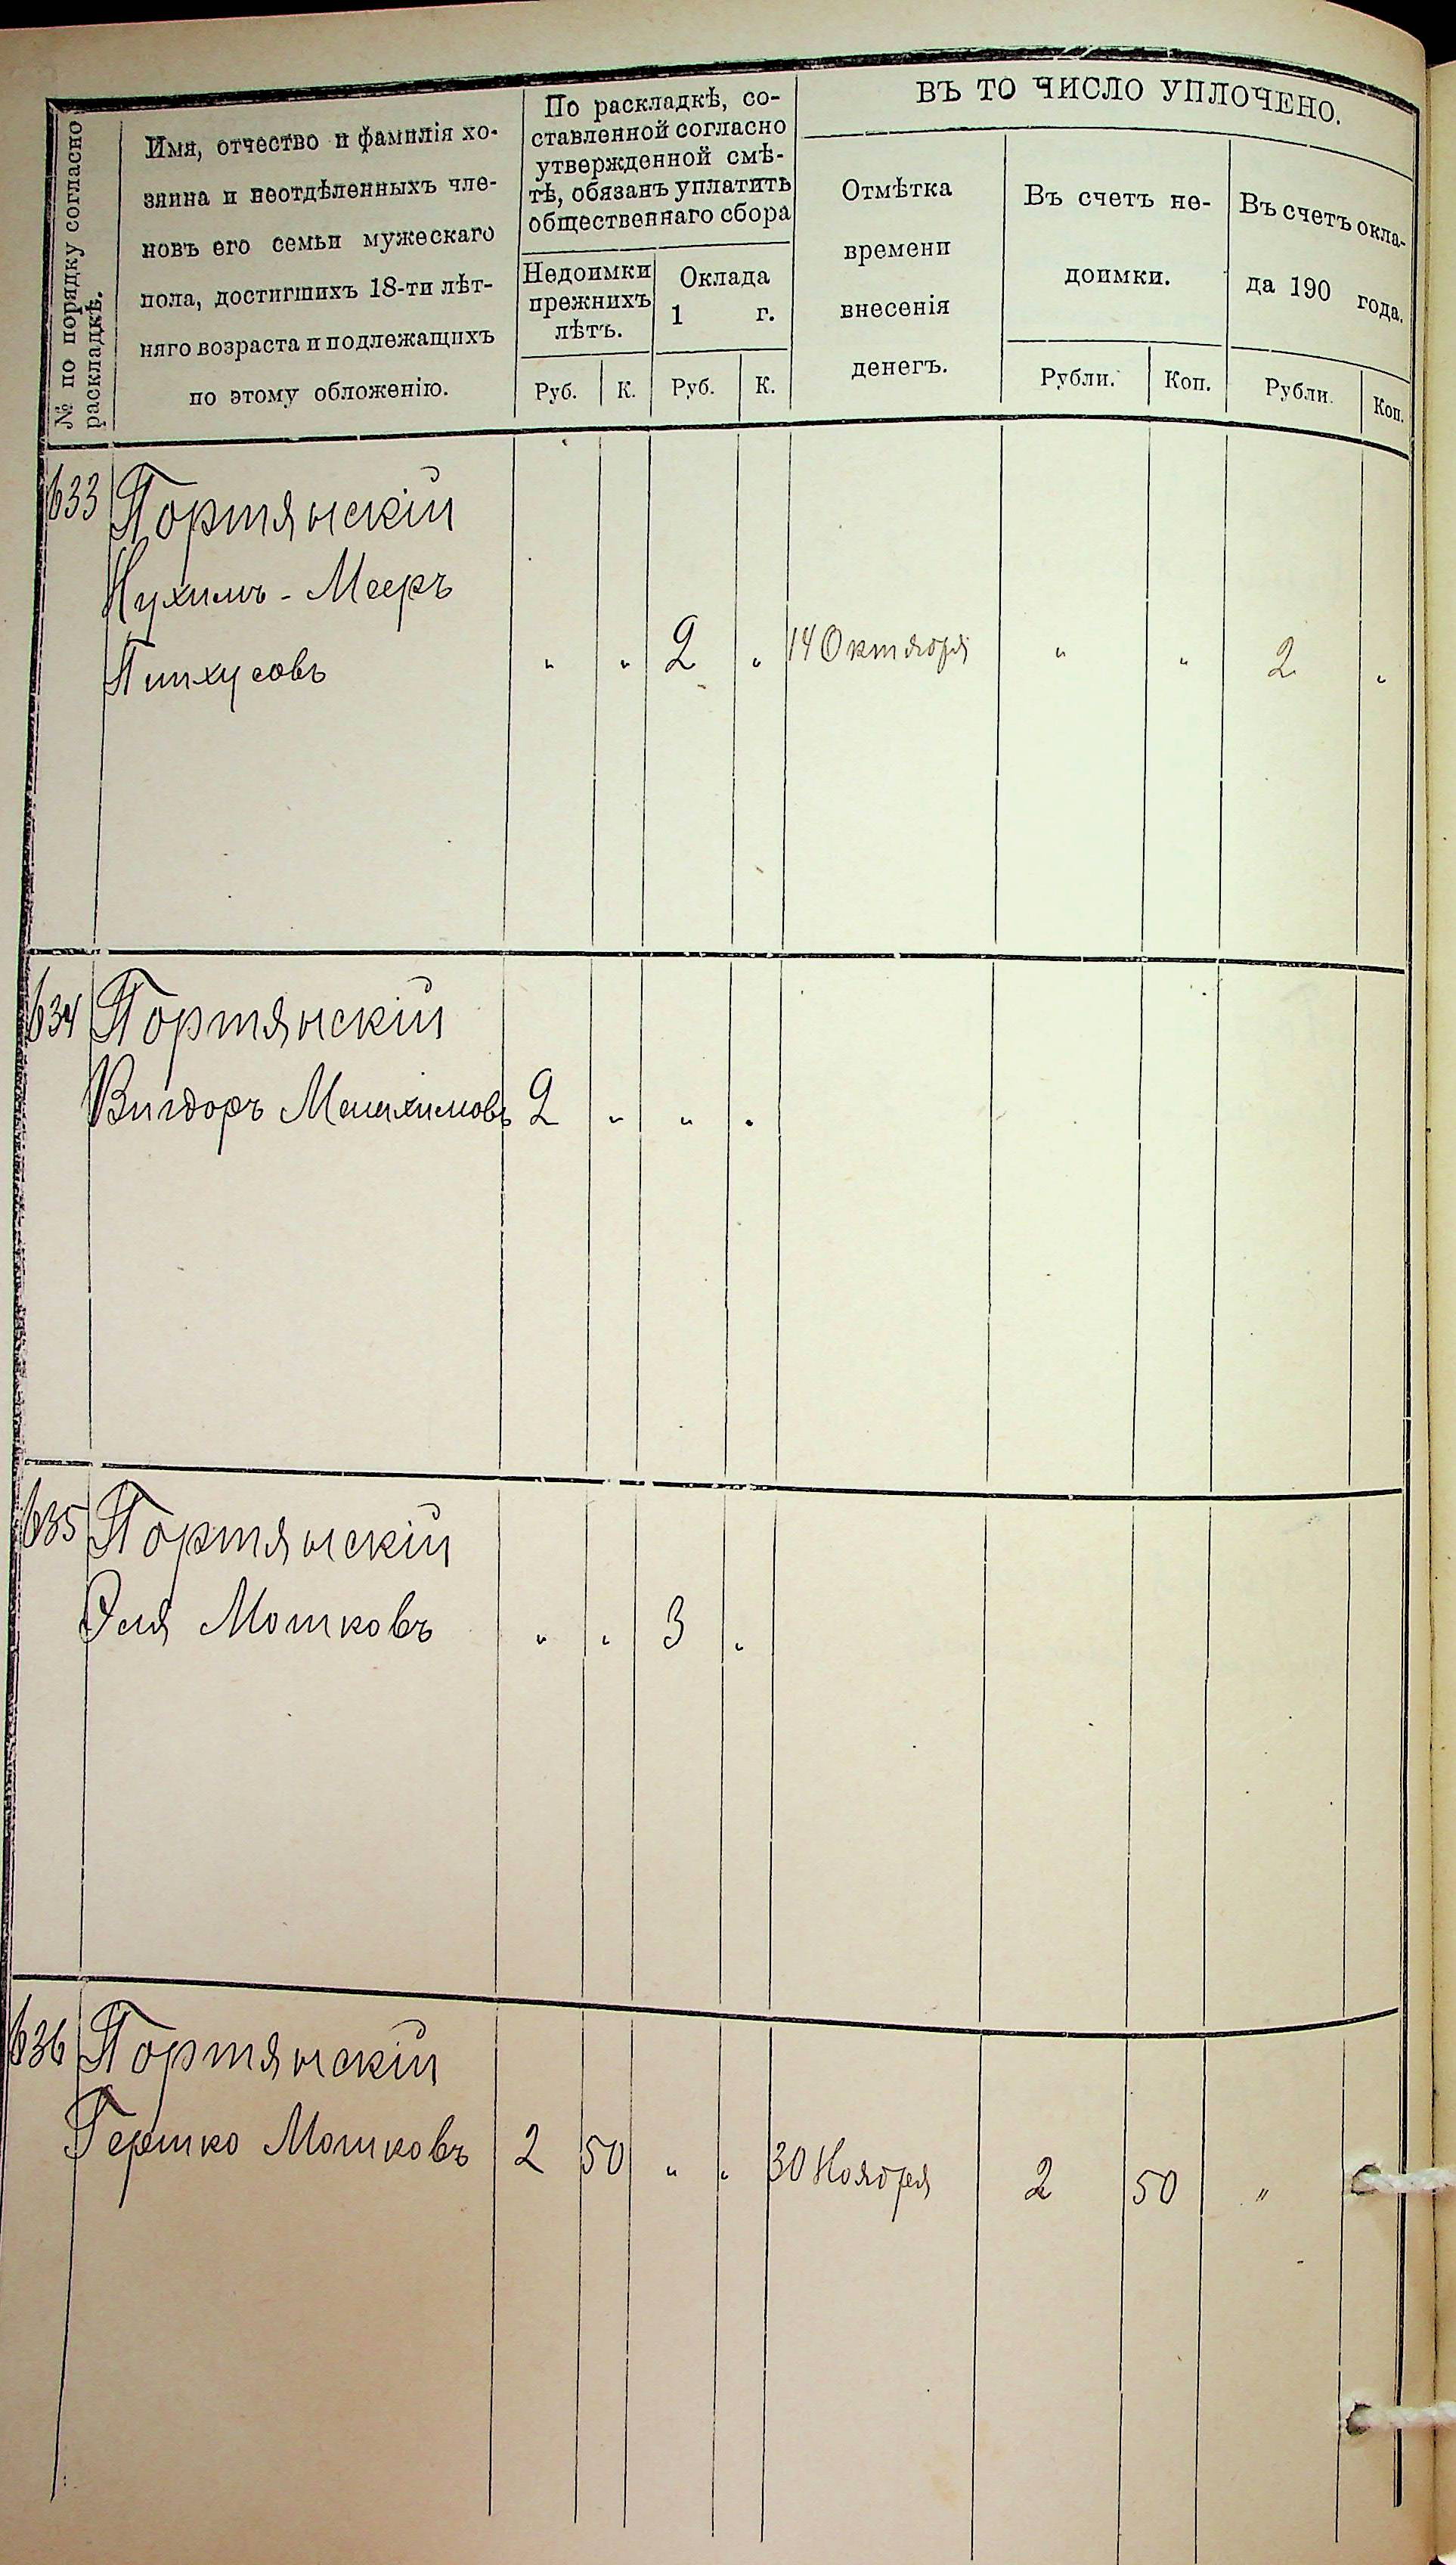 № по порядку согласно
раскладкѣ.
Имя, отчество и фамилія хо-
зяина и неотдѣленныхъ чле-
новъ его семьи мужескаго
пола, достигшихъ 18-ти лѣт-
няго возраста и подлежащихъ
по этому обложенію.
По раскладкѣ, со-
ставленной согласно
утвержденной смѣ-
тѣ, обязанъ уплатить
общественнаго сбора
Недоимки
прежнихъ
лѣтъ.
Оклада
1 г.
Руб. К. Руб. К.
ВЪ ТО ЧИСЛО УПЛОЧЕНО.
Отмѣтка
времени
внесенія
денегъ.
Въ счетъ не-
доимки.
Рубли. Коп.
Въ счетъ окла-
да 190 года.
Рубли. Коп.
633 Портянскій
Нухимъ - Мееръ
Пинхусовъ " " 2 " 14 Октября " " 2 "
634 Портянскій
Вигдоръ Менахимовъ 2 " " "
635 Портянскій
Эля Мошковъ " " 3 "
636 Портянскій
Гершко Мошковъ 2 50 " " 30 Ноября 2 50 "